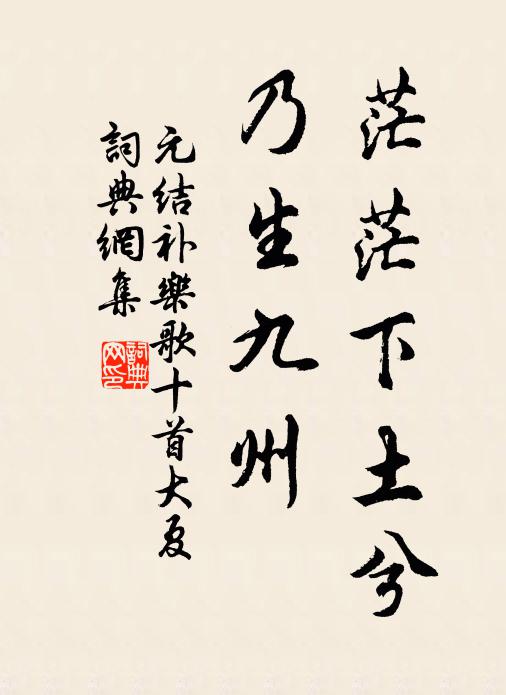 茫茫下土兮
乃生九州
元结补樂歌十首大夏
詞典網集
詞典网印